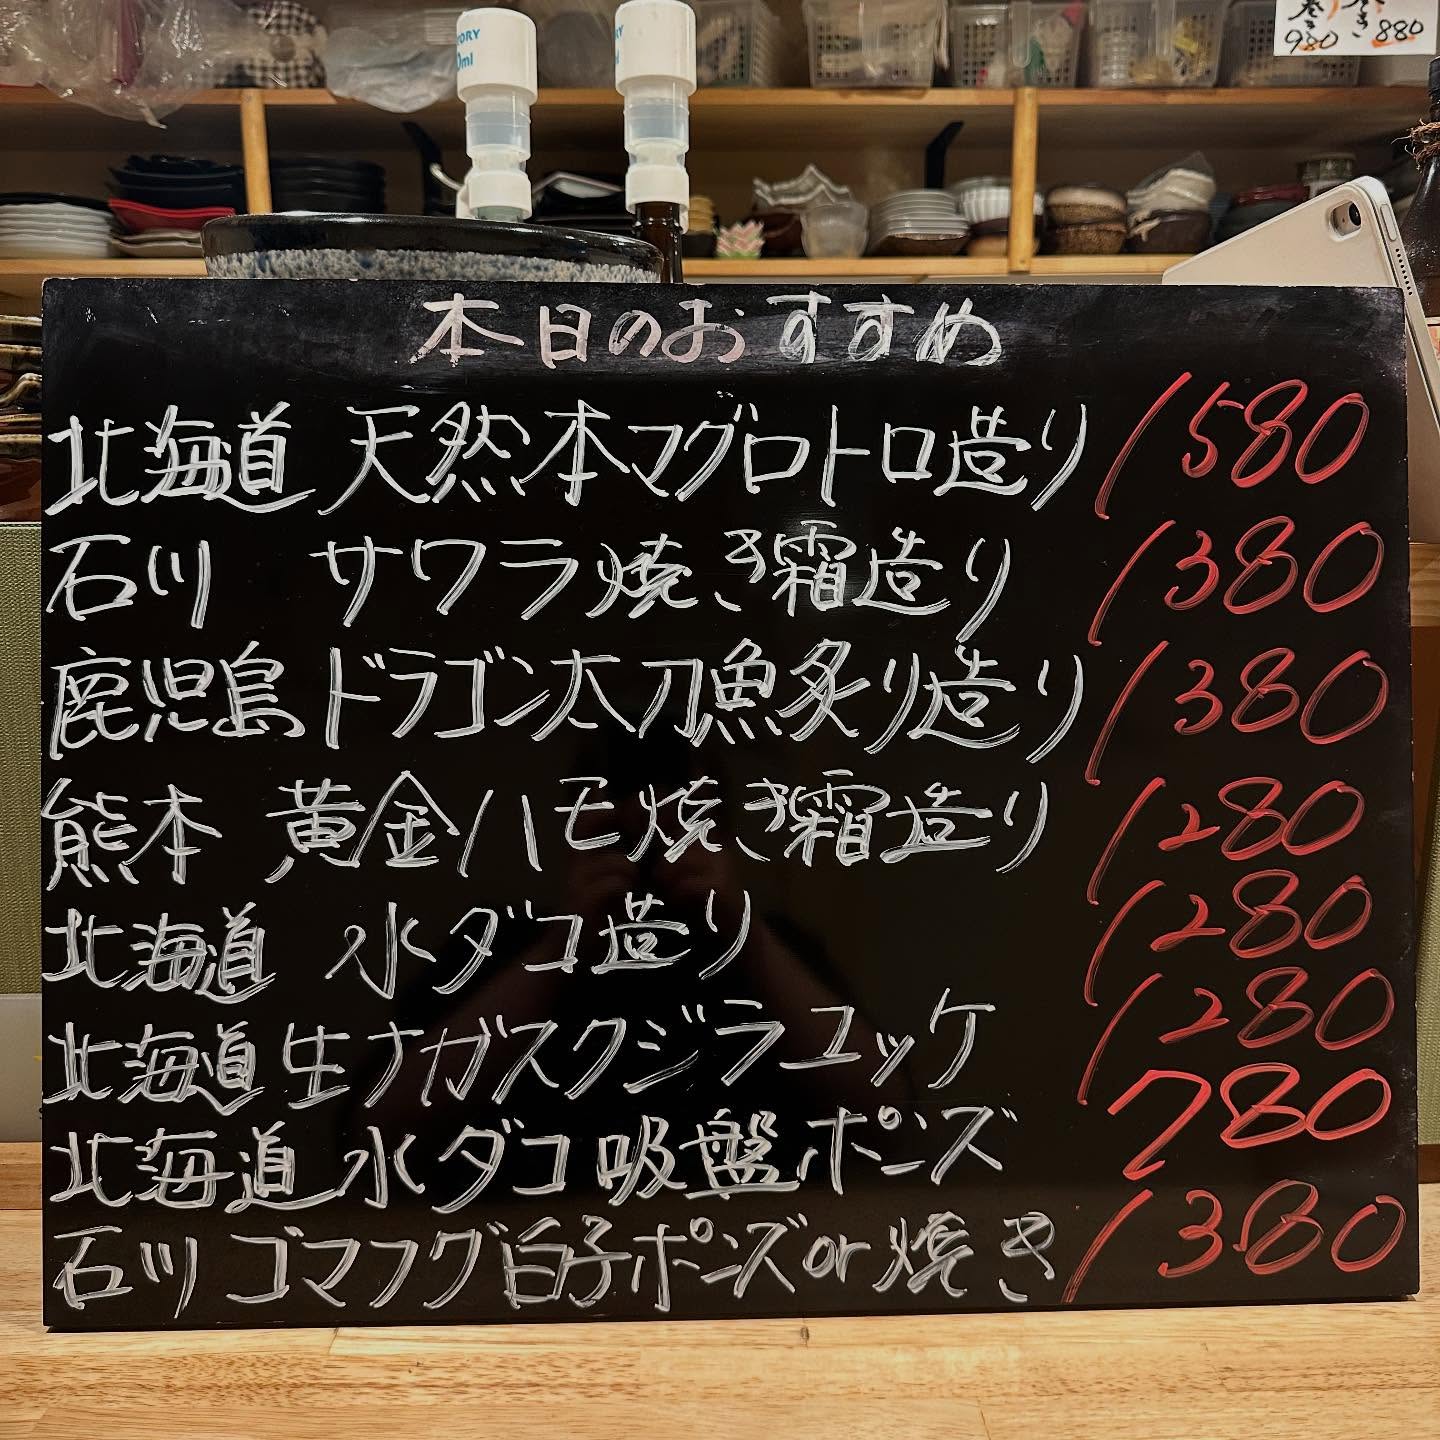 巻き き
980 880
本日のおすすめ
北海道 天然本マグロトロ造り 1580
石川 サワラ焼き霜造り 1380
鹿児島 ドラゴン太刀魚炙り造り 1380
熊本 黄金ハモ焼き霜造り 1280
北海道 水ダコ造り 1280
北海道 生ナガスクジラユッケ 1280
北海道 水ダコ吸盤ポンズ 780
石川 ゴマフグ白子ポンズor焼き 1380